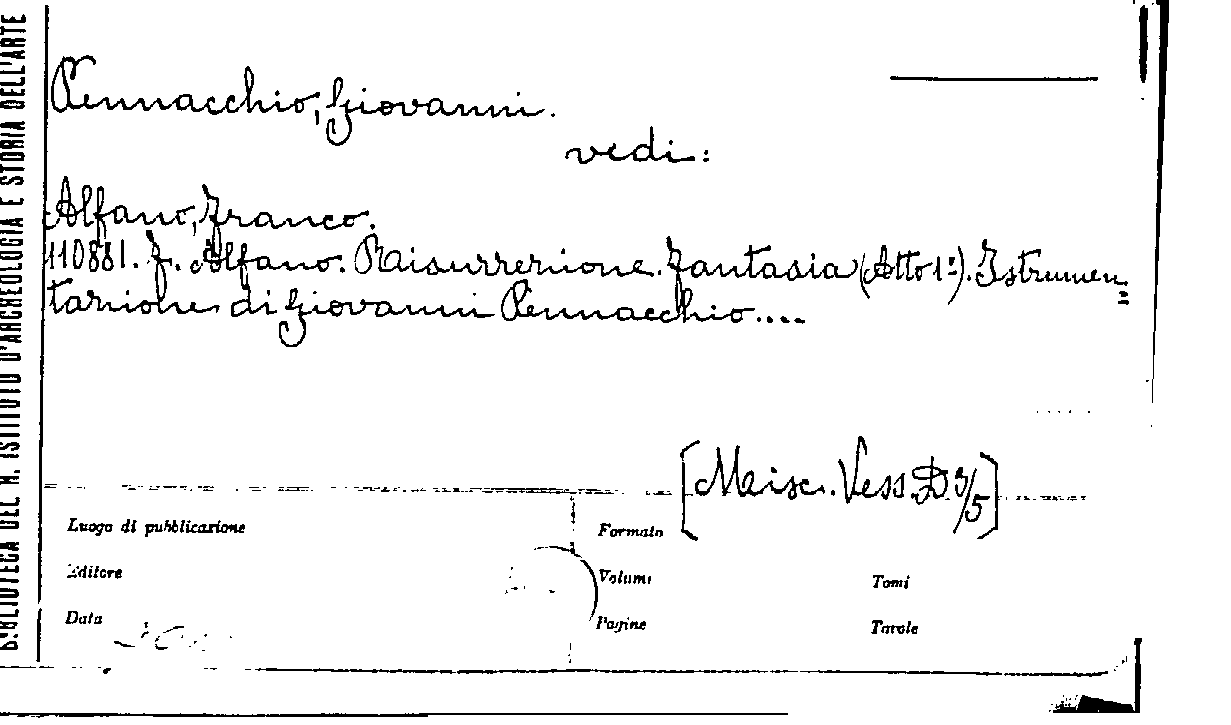 BIBLIOTECA DEL R. ISTITUTO D'ARCHEOLOGIA E STORIA DELL'ARTE
Pennacchio, Giovanni.
vedi:
Alfano, Franco.
110881. F. Alfano. Risurrezione. Fantasia (Atto 1º). Istrumen=
tazione di Giovanni Pennacchio....
[Misc. Vess. D 3/5]
Luogo di pubblicazione
Formato
Editore
Volumi
Tomi
Data
Pagine
Tavole